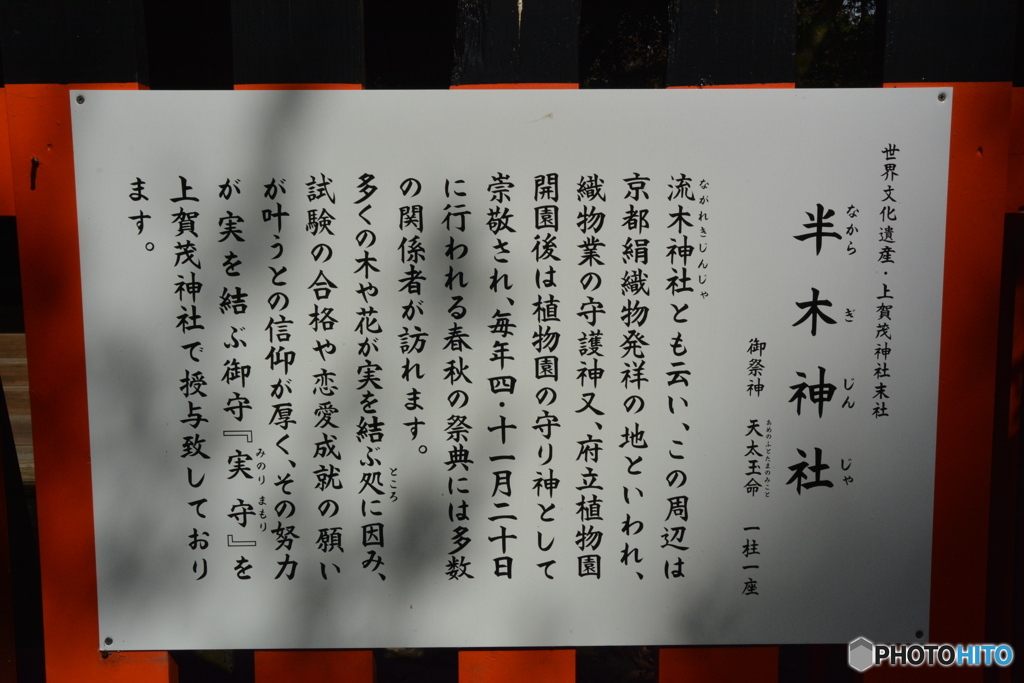 世界文化遺産・上賀茂神社末社
半木神社
なからぎじんじゃ
御祭神 天太玉命 一柱一座
あめのふとだまのみこと
流木神社とも云い、この周辺は
ながれきじんじゃ
京都絹織物発祥の地といわれ、
織物業の守護神又、府立植物園
開園後は植物園の守り神として
崇敬され、毎年四・十一月二十日
に行われる春秋の祭典には多数
の関係者が訪れます。
多くの木や花が実を結ぶ処に因み、
ところ
試験の合格や恋愛成就の願い
が叶うとの信仰が厚く、その努力
が実を結ぶ御守『実守』を
みのり まもり
上賀茂神社で授与致しており
ます。
PHOTOHITO